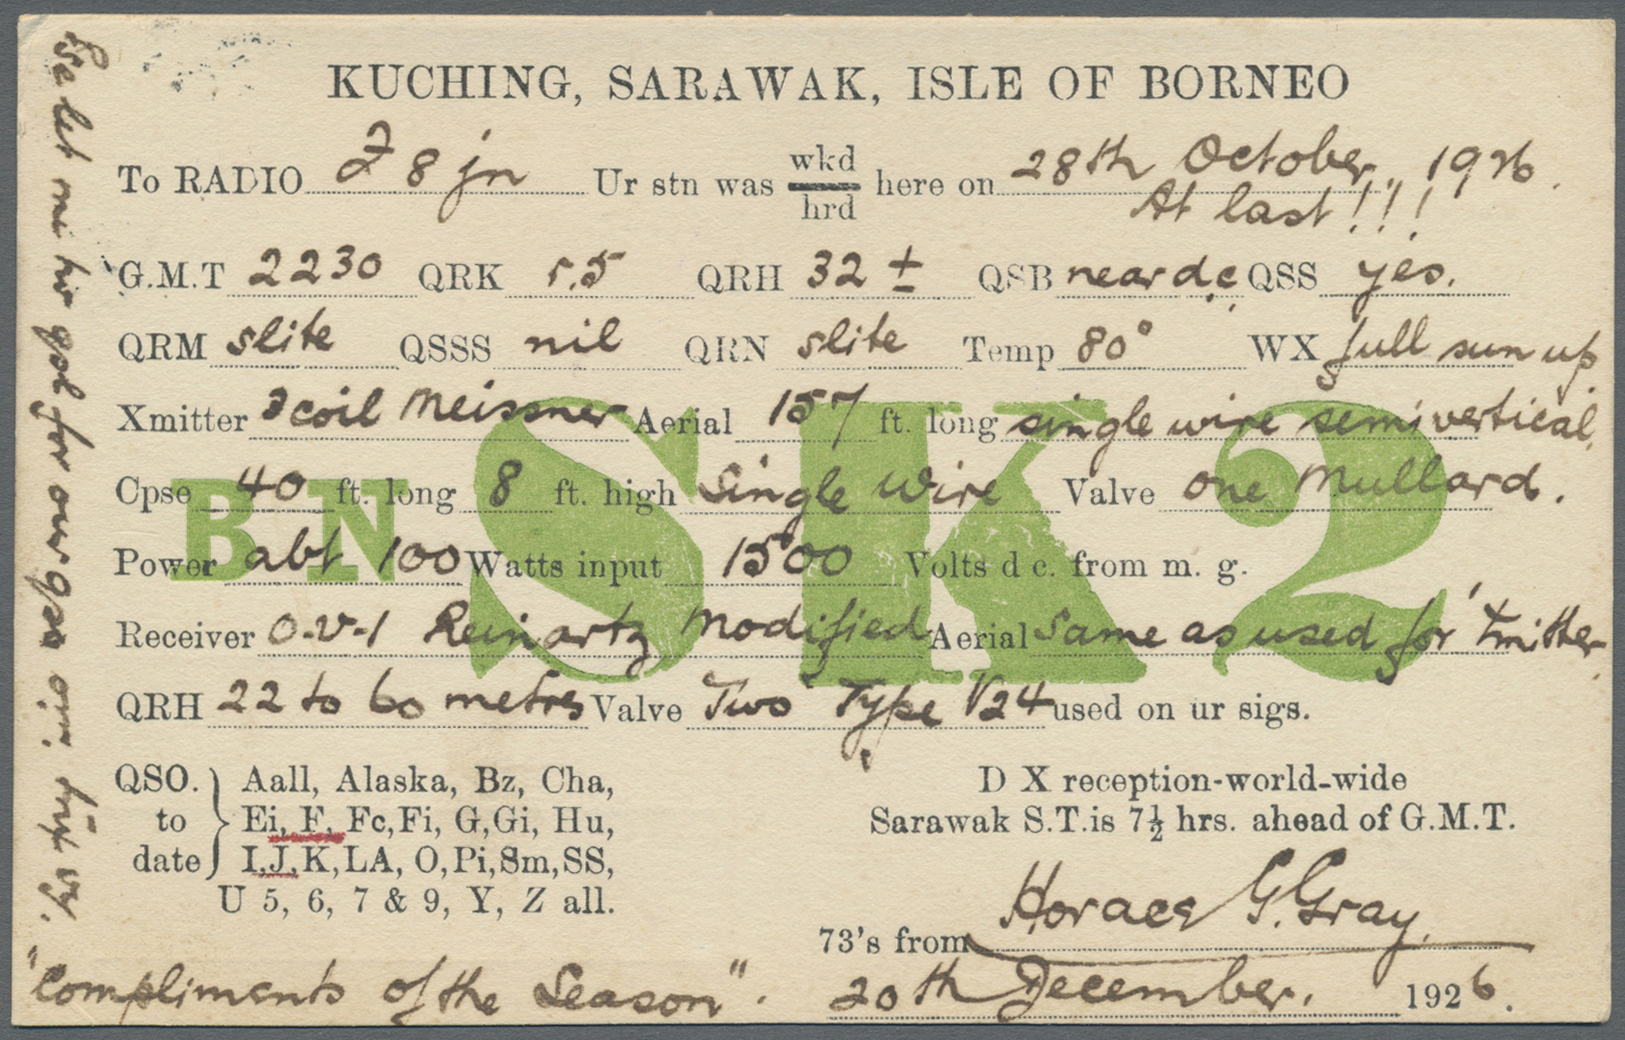 KUCHING, SARAWAK, ISLE OF BORNEO
To RADIO F 8 jn Ur stn was wkd/hrd here on 28th October, 1926.
At last!!!
G.M.T 2230 QRK r.5 QRH 32 ± QSB near d.c QSS yes.
QRM slite QSSS nil QRN slite Temp 80° WX full sun up
Xmitter 3 coil Meissner Aerial 157 ft. long single wire semi vertical.
Cpse 40 ft. long 8 ft. high Single Wire Valve one Mullard.
BN SK2
Power abt 100 Watts input 1500 Volts d c. from m. g.
Receiver O-V-1 Reinartz Modified Aerial Same as used for Xmitter.
QRH 22 to 60 metres Valve Two Type V24 used on ur sigs.
QSO. to date } Aall, Alaska, Bz, Cha,
Ei, F, Fc, Fi, G, Gi, Hu,
I, J, K, LA, O, Pi, Sm, SS,
U 5, 6, 7 & 9, Y, Z all.
D X reception-world-wide
Sarawak S.T. is 7½ hrs. ahead of G.M.T.
73's from Horace G. Gray.
20th December. 1926.
"Compliments of the Season".
let me for our qso om.